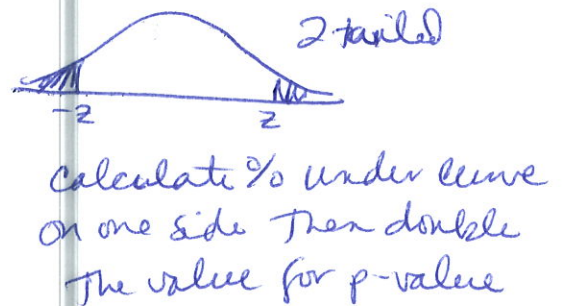 2 tailed
-z
z
Calculate % under curve
on one side Then double
The value for p-value